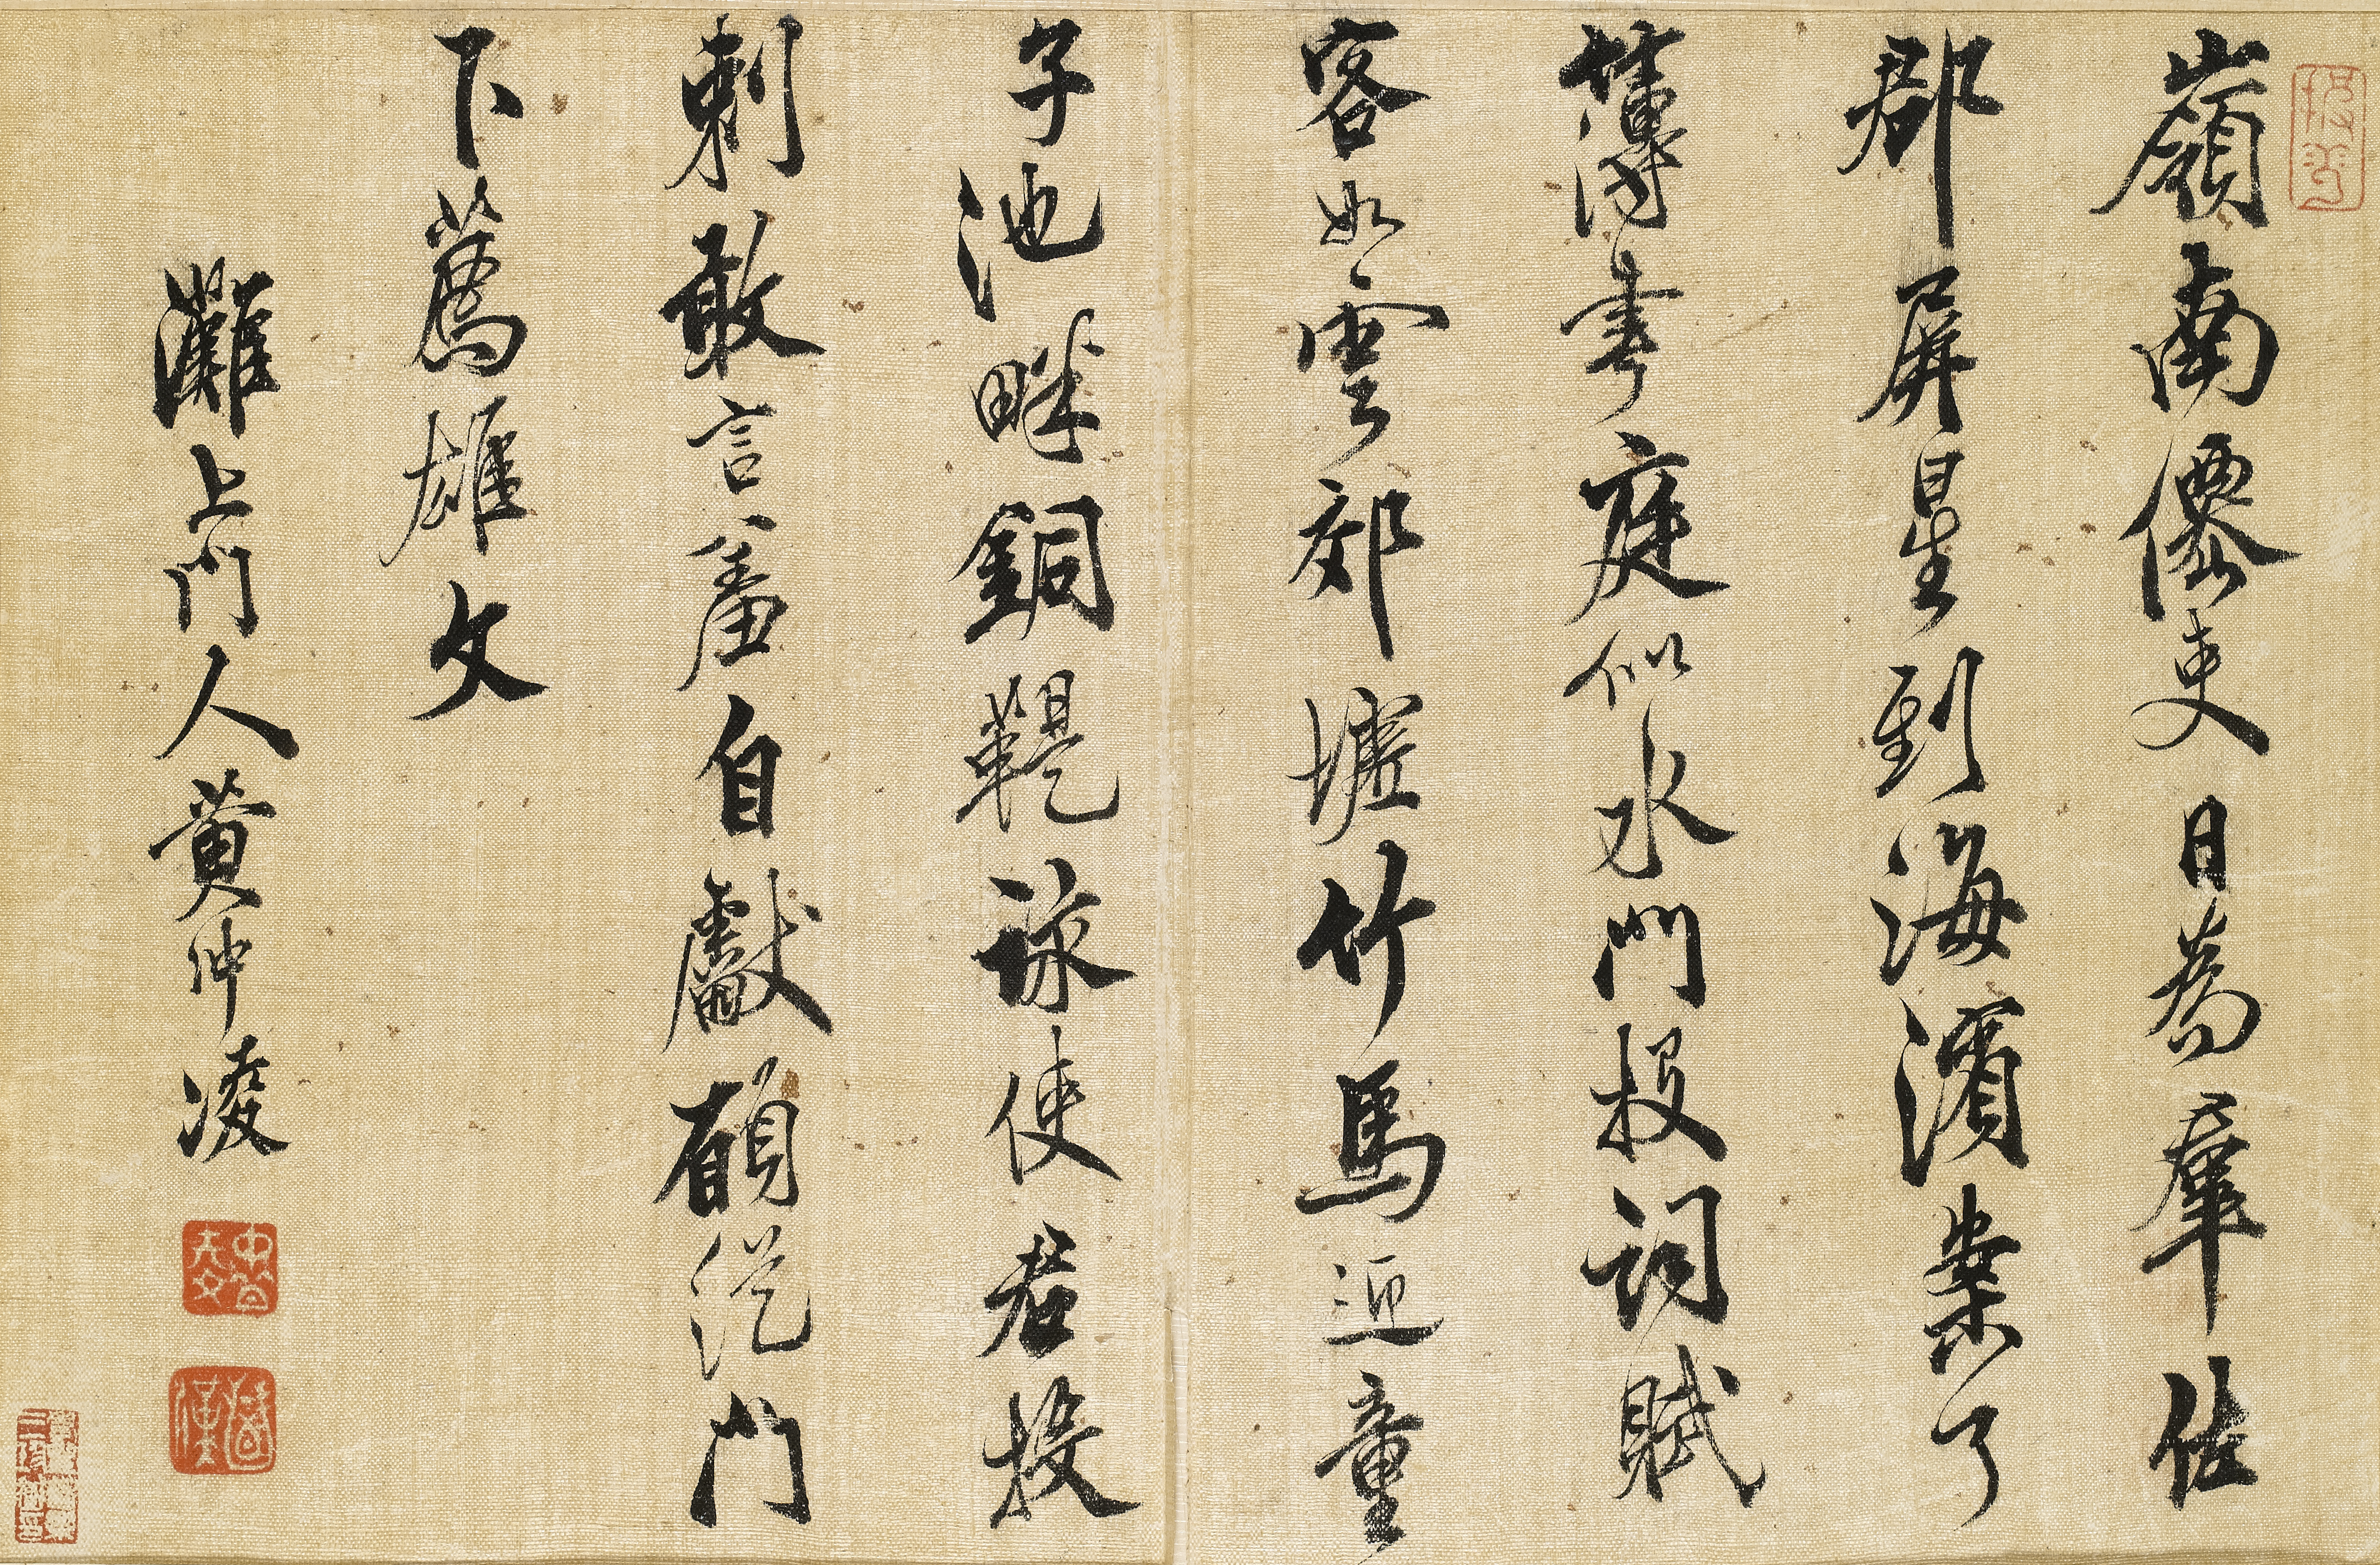 嶺南僊吏日為羣佐
郡屏星到海濱案了
簿書庭似水門投詞賦
客如雲郊墟竹馬迎童
子池畔銅鞮詠使君投
刺敢言羞自獻願從門
下薦雄文
灘上門人黃仲凌